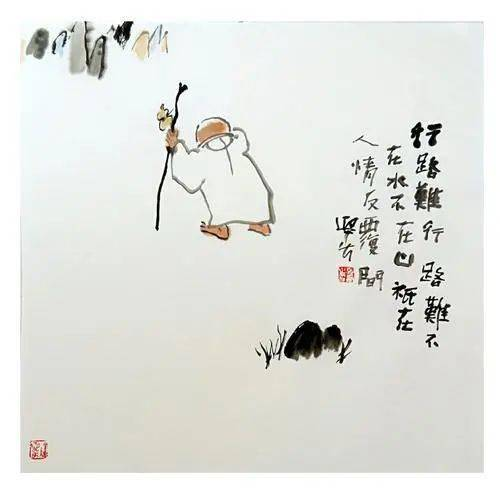 行路難行路難不
在水不在山祗在
人情反覆間